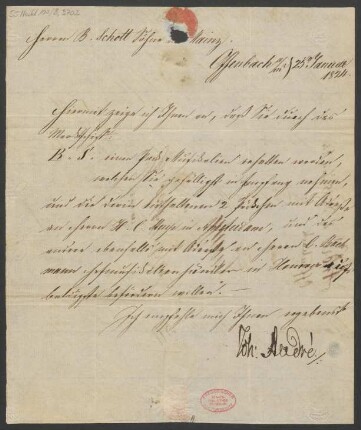 Herren B. Schott Söhne in Mainz.
Offenbach a/m 25 Januar
1824
Hiermit zeige ich Ihnen an, daß Sie durch das
Marktschiff
B. S. einen Pack Musikalien erhalten werden,
welchen Sie gefälligst in Empfang nehmen,
und die darin enthaltenen 2 Päckchen mit
an Herrn H. C. in Amsterdam, und das
andere ebenfalls mit an Herrn C. Bach-
mann Hofmusikalienhändler in Hannover
befördern wollen. —
Ich empfehle mich Ihnen ergebenst
Joh: André.